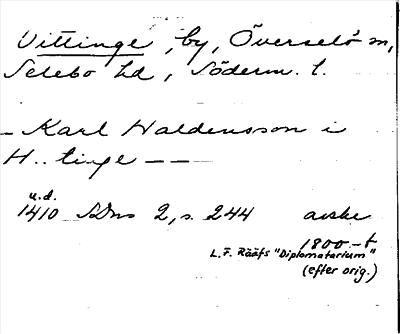 Vittinge, by, Överselö sn,
Selebo hd, Söderm. l.
- Karl Haldensson i
H..tinge - - -
u.d.
1410 SDns 2, s. 244 avskr
1800-t
L.F. Rääfs "Diplomatarium"
(efter orig.)